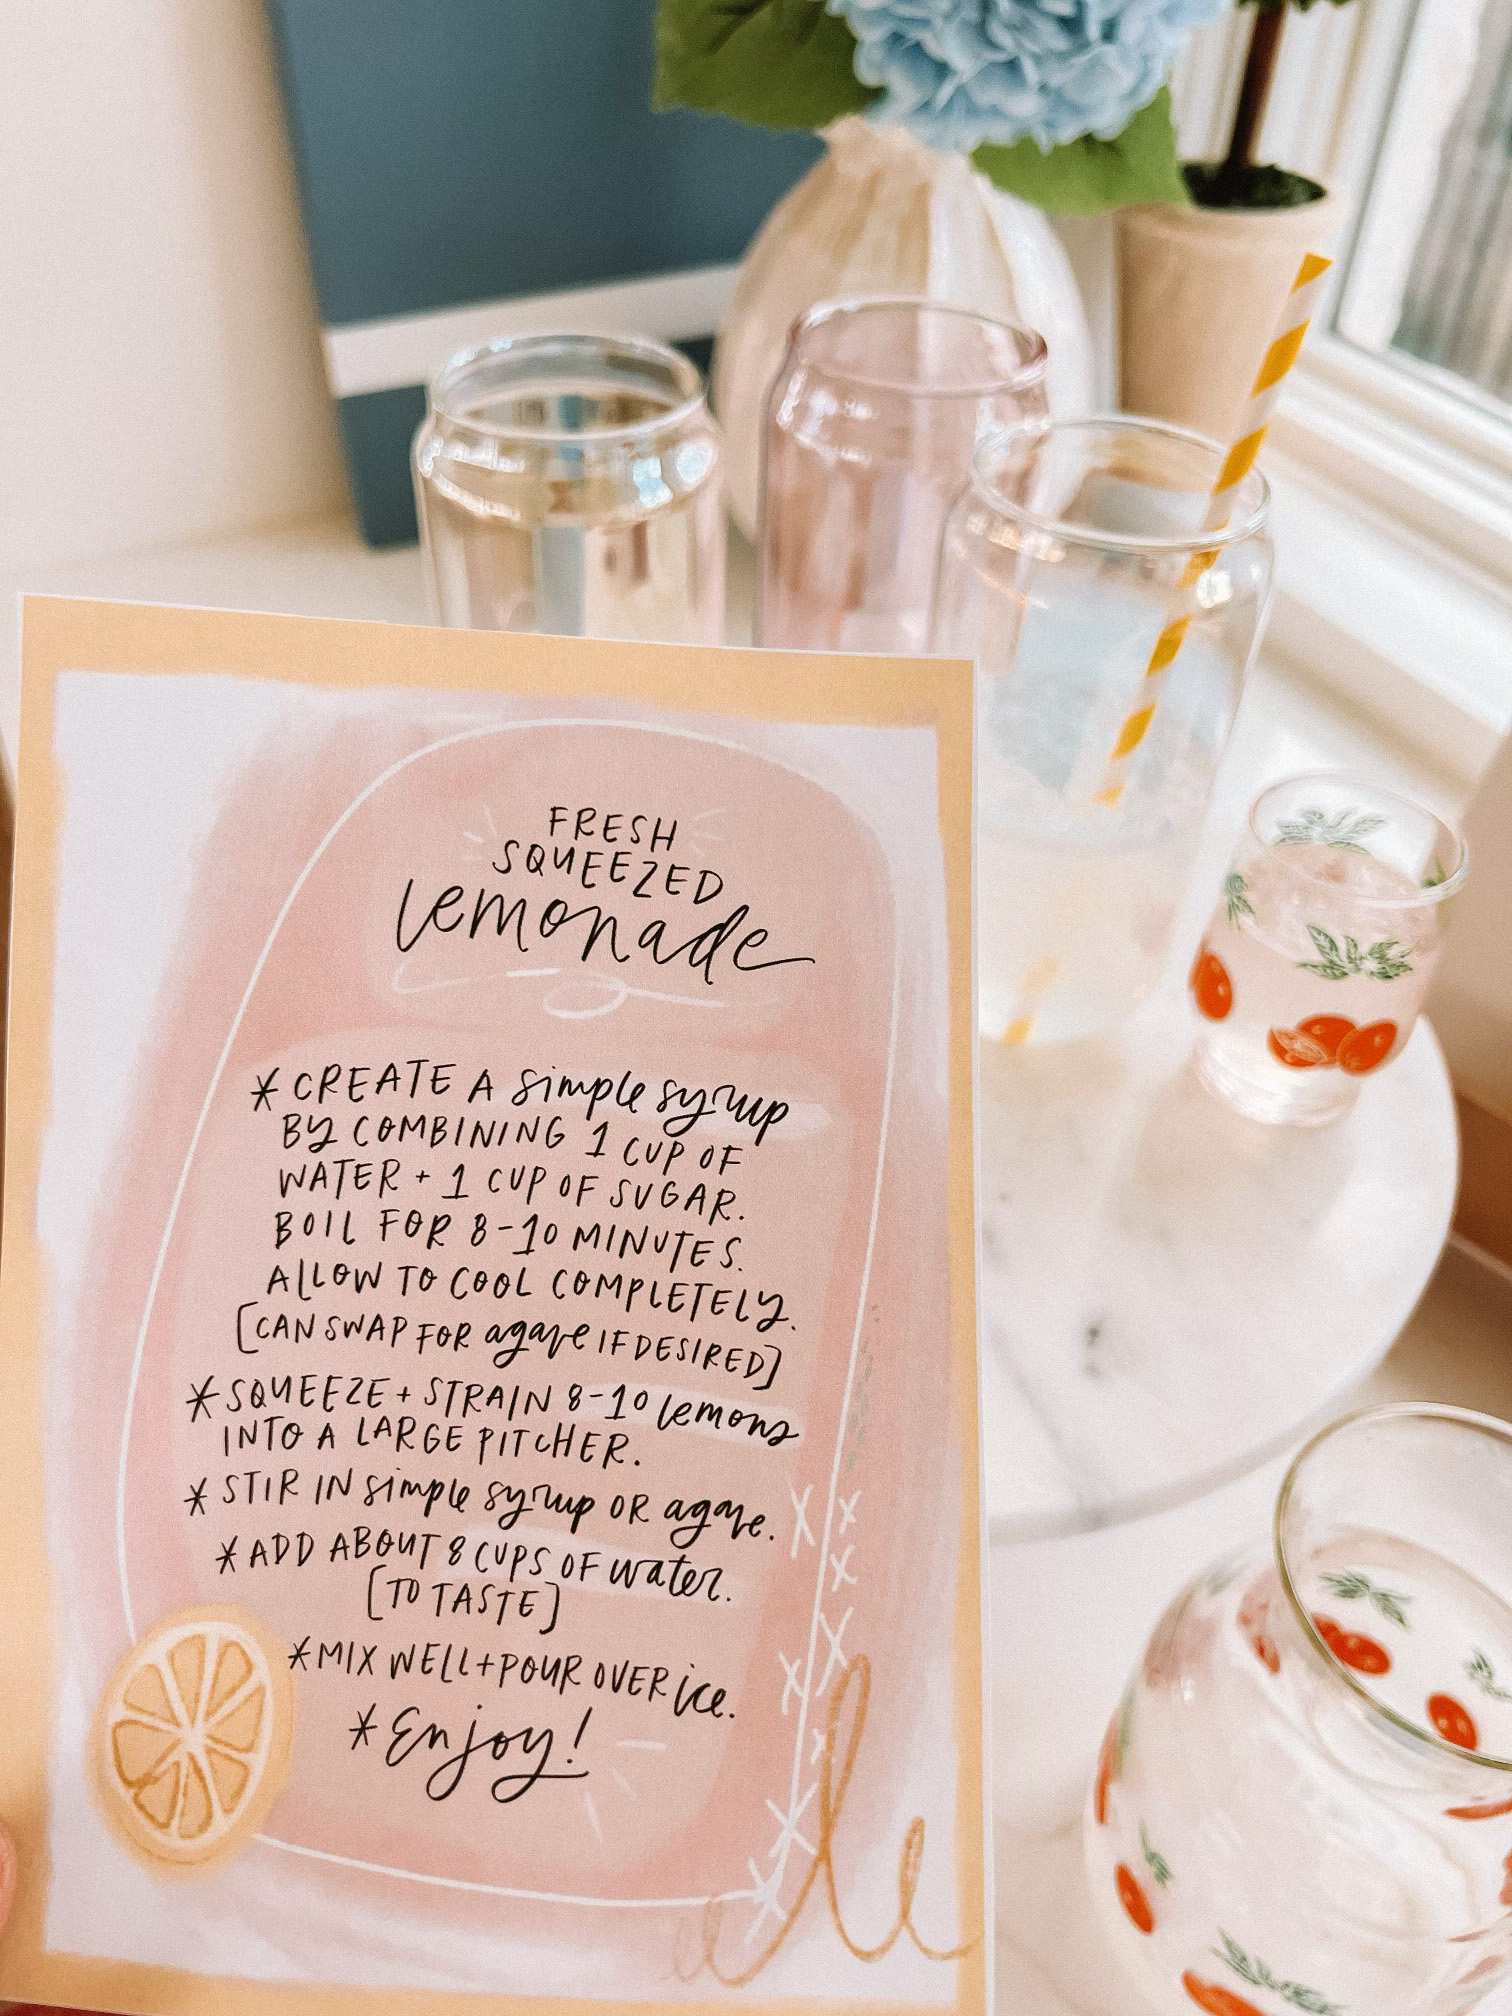 FRESH
SQUEEZED
lemonade
* CREATE A simple syrup
BY COMBINING 1 CUP OF
WATER + 1 CUP OF SUGAR.
BOIL FOR 8-10 MINUTES.
ALLOW TO COOL COMPLETELY.
[CAN SWAP FOR agave IF DESIRED]
* SQUEEZE + STRAIN 8-10 lemons
INTO A LARGE PITCHER.
* STIR IN simple syrup OR agave.
* ADD ABOUT 8 CUPS OF water.
[TO TASTE]
* MIX WELL + POUR OVER ice.
* Enjoy!